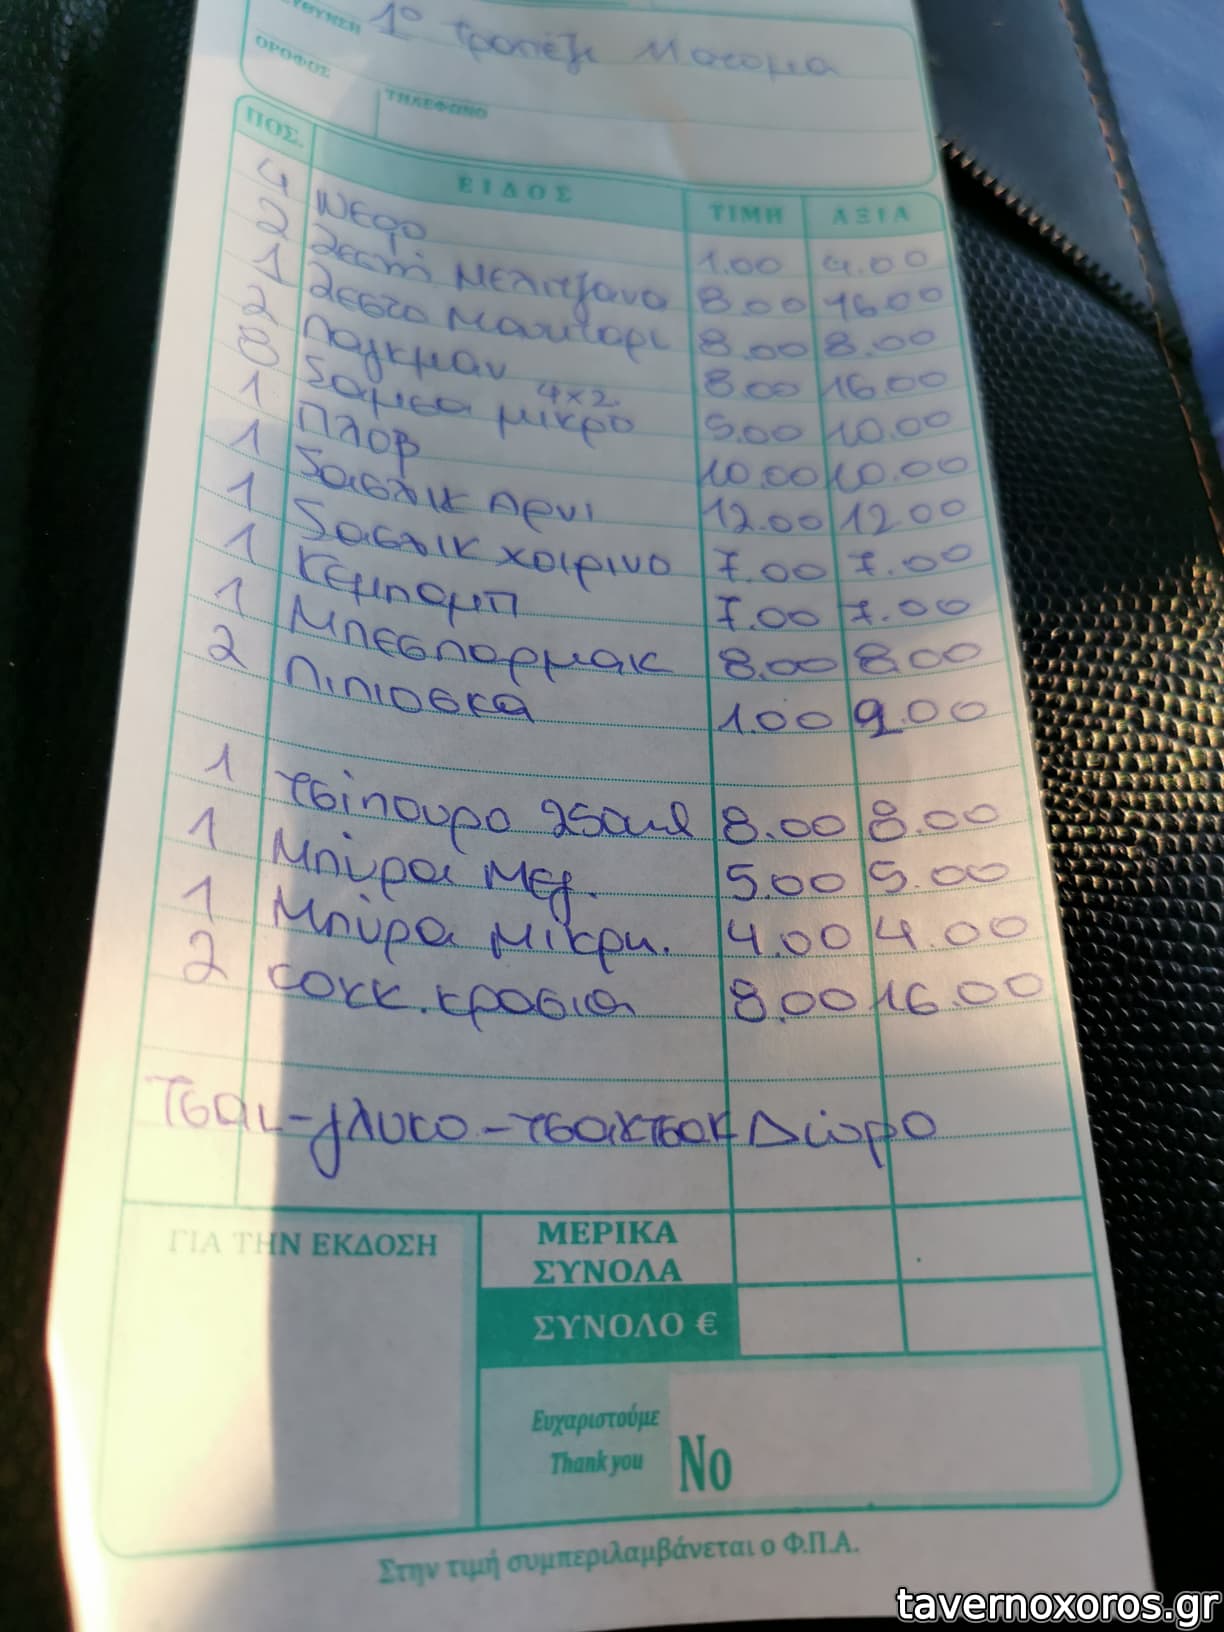 1ο τραπέζι
ΟΡΟΦΟΣ
ΤΗΛΕΦΩΝΟ
ΠΟΣ. ΕΙΔΟΣ ΤΙΜΗ ΑΞΙΑ
4 Νερο 1.00 4.00
2 Ζεστή Μελιτζανα 8.00 16.00
1 Ζεστο Μανιταρι 8.00 8.00
2 Λαγκμαν 8.00 16.00
8 Σαμσα μικρο 4x2. 5.00 10.00
1 Πλοβ 10.00 10.00
1 Σασλικ Αρνι 12.00 12.00
1 Σασλικ χοιρινο 7.00 7.00
1 Κεμπαμπ 7.00 7.00
1 Μπεσπαρμακ 8.00 8.00
2 Πιπιοσκα 1.00 2.00
1 τσίπουρο 250ml 8.00 8.00
1 Μπύρα Μεγ. 5.00 5.00
1 Μπύρα Μικρη. 4.00 4.00
2 κοκκ. κρασια 8.00 16.00
Τσαι-γλυκο-τσακτσακ Δώρο
ΓΙΑ ΤΗΝ ΕΚΔΟΣΗ
ΜΕΡΙΚΑ
ΣΥΝΟΛΑ
ΣΥΝΟΛΟ €
Ευχαριστούμε
Thank you
No
Στην τιμή συμπεριλαμβάνεται ο Φ.Π.Α.
tavernoxoros.gr